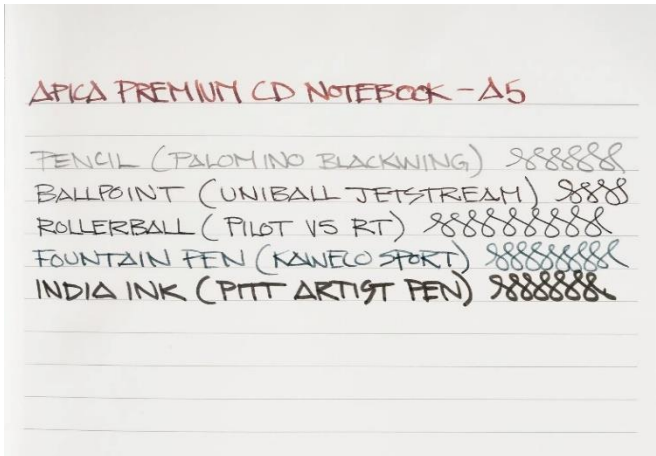 APICA PREMIUM CD NOTEBOOK - A5
PENCIL (PALOMINO BLACKWING)
BALLPOINT (UNIBALL JETSTREAM)
ROLLERBALL (PILOT V5 RT)
FOUNTAIN PEN (KAWECO SPORT)
INDIA INK (PITT ARTIST PEN)